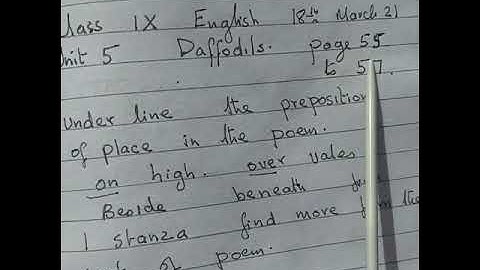 Class IX English 18th March 21
Unit 5 Daffodils. page 55
to 57.
Under line the preposition
of place in the poem.
on high. over vales
Beside beneath
1 stanza find more from the
of poem.